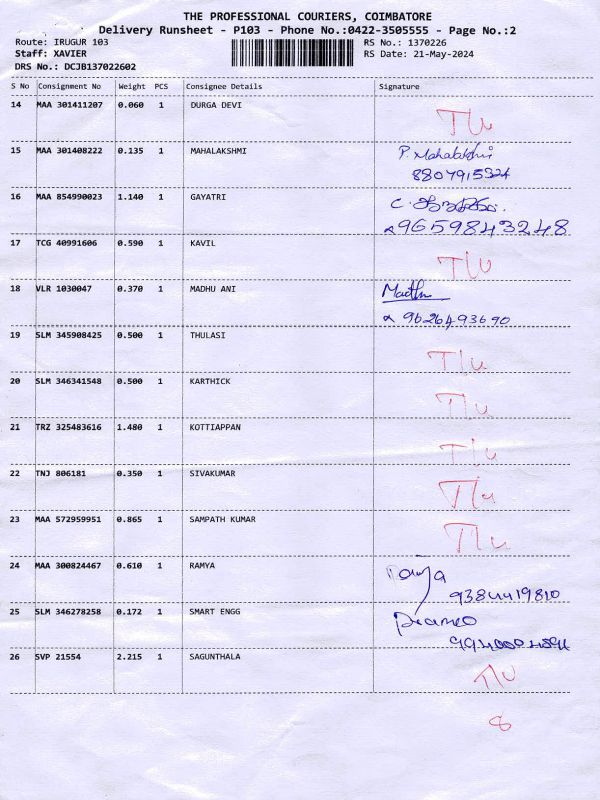 THE PROFESSIONAL COURIERS, COIMBATORE
Delivery Runsheet - P103 - Phone No.:0422-3505555 - Page No.:2
Route: IRUGUR 103 RS No.: 1370226
Staff: XAVIER RS Date: 21-May-2024
DRS No.: DCJB137022602
S No Consignment No Weight PCS Consignee Details Signature
14 MAA 301411207 0.060 1 DURGA DEVI
T/u
15 MAA 301408222 0.135 1 MAHALAKSHMI P. Mahalakshmi
8807915324
16 MAA 854990023 1.140 1 GAYATRI
9659843248
17 TCG 40991606 0.590 1 KAVIL
T/u
18 VLR 1030047 0.370 1 MADHU ANI Madhu
9626493690
19 SLM 345908425 0.500 1 THULASI
T/u
20 SLM 346341548 0.500 1 KARTHICK
T/u
21 TRZ 325483616 1.480 1 KOTTIAPPAN
T/u
22 TNJ 806181 0.350 1 SIVAKUMAR
T/u
23 MAA 572959951 0.865 1 SAMPATH KUMAR
T/u
24 MAA 300824467 0.610 1 RAMYA
9384419810
25 SLM 346278258 0.172 1 SMART ENGG
26 SVP 21554 2.215 1 SAGUNTHALA
T/u
8